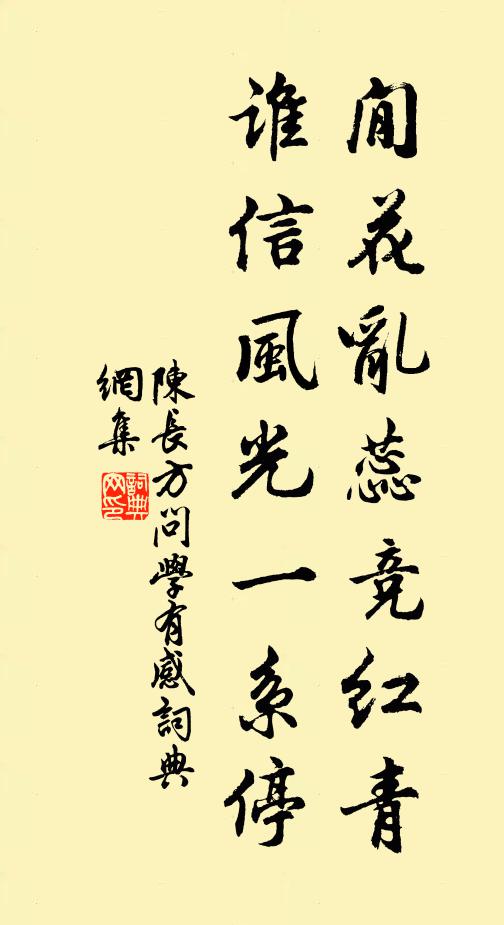 閒花亂蕊竞红青
谁信風光一系停
陳長方問學有感詞典
網集
詞典
网印